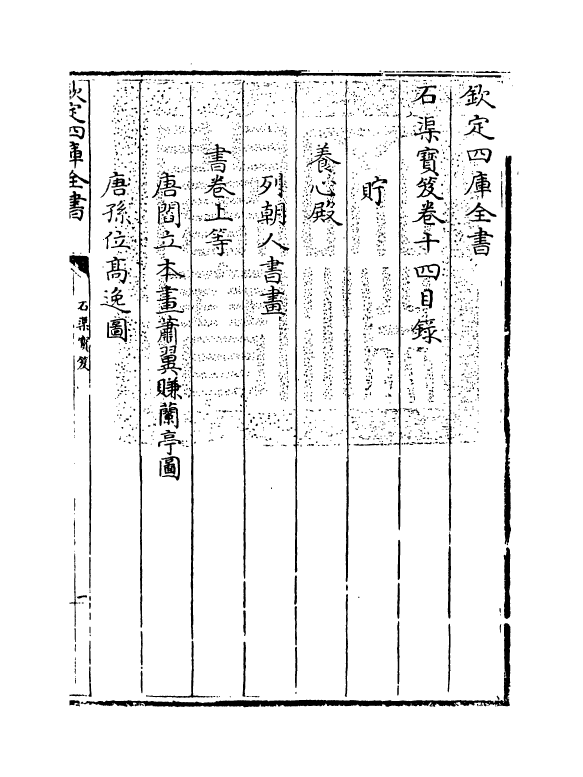 欽定四庫全書
石渠寶笈卷十四目錄
貯
養心殿
列朝人書畫
書卷上等
唐閻立本畫蕭翼賺蘭亭圖
唐孫位高逸圖
欽定四庫全書
石渠寶笈
一